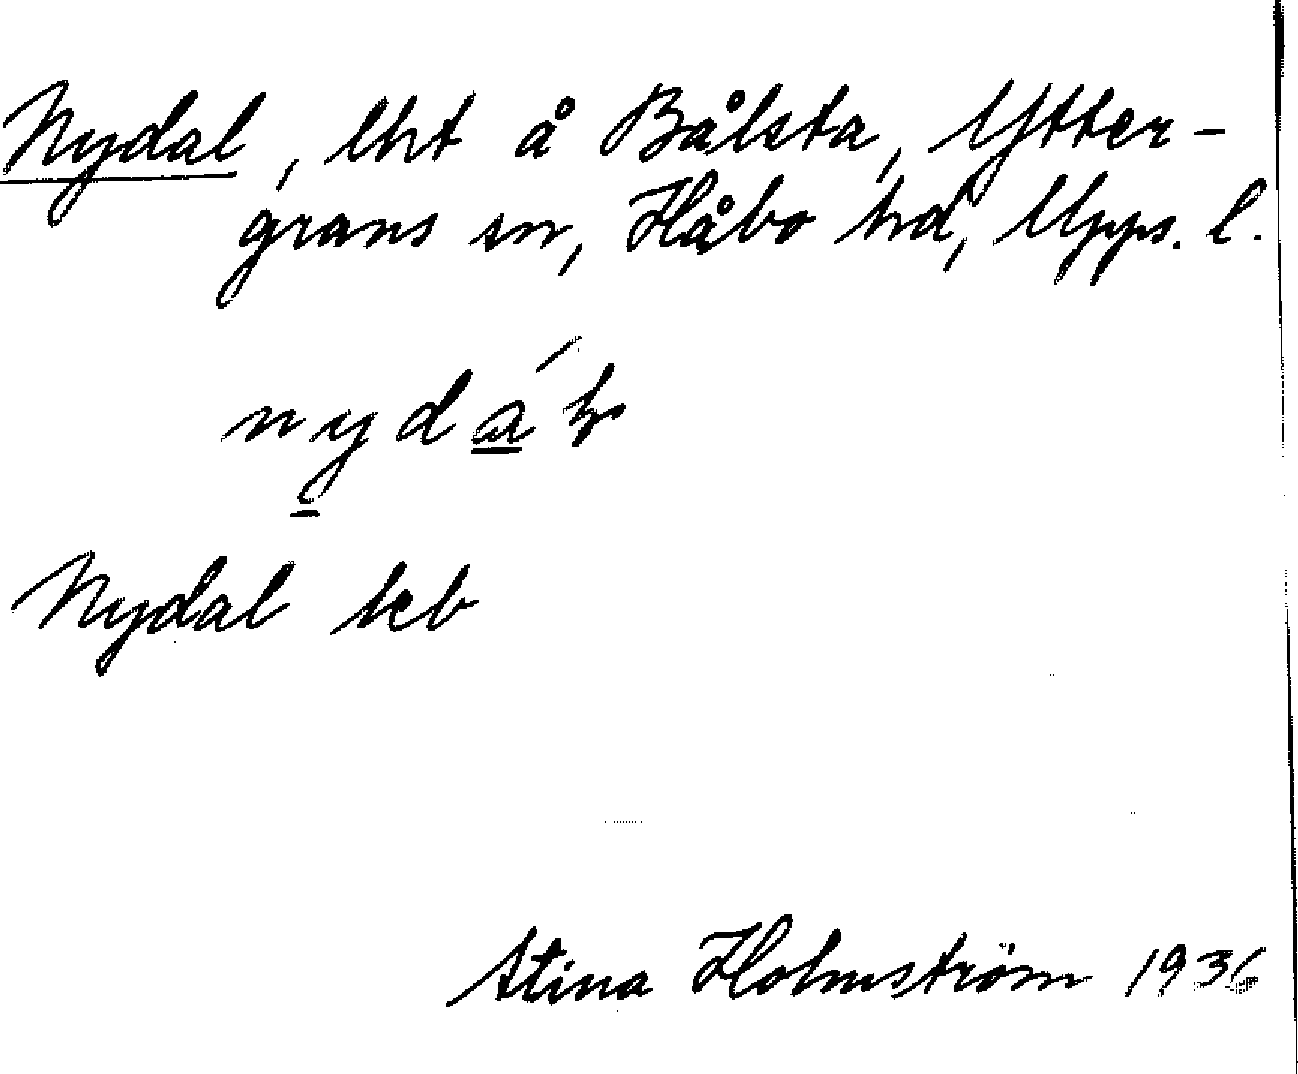 Nydal, lht å Bålsta, Ytter-
grans sn, Håbo hd, Upps. l.
Nydal keb
Stina Holmström 1936